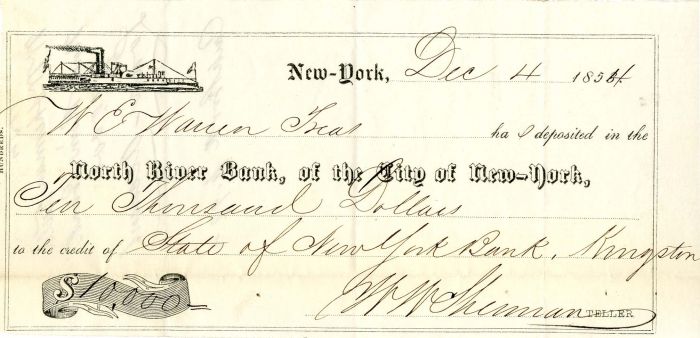 New-York, Dec 4 1854
W E Warren Treas has deposited in the
North River Bank, of the City of New-York,
Ten Thousand Dollars
to the credit of State of New York Bank, Kingston
$10,000 W W Sherman TELLER
HUNDREDS.